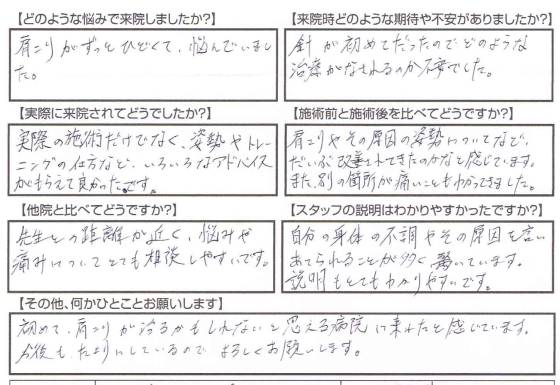 【どのような悩みで来院しましたか?】
肩こりがずっとひどくて、悩んでいまし
た。
【来院時どのような期待や不安がありましたか?】
針が初めてだったのでどのような
治療がなされるのか不安でした。
【実際に来院されてどうでしたか?】
実際の施術だけでなく、姿勢やトレー
ニングの仕方など、いろいろなアドバイス
がもらえて良かったです。
【施術前と施術後を比べてどうですか?】
肩こりやその原因の姿勢についてなど、
だいぶ改善されてきたのかなと感じています。
また、別の箇所が痛いこともわかってきました。
【他院と比べてどうですか?】
先生との距離が近く、悩みや
痛みについてとても相談しやすいです。
【スタッフの説明はわかりやすかったですか?】
自分の身体の不調やその原因を言い
あてられることが多く驚いています。
説明もとてもわかりやすいです。
【その他、何かひとことお願いします】
初めて、肩こりが治るかもしれないと思える病院に来れたと感じています。
今後も、たよりにしているのでよろしくお願いします。